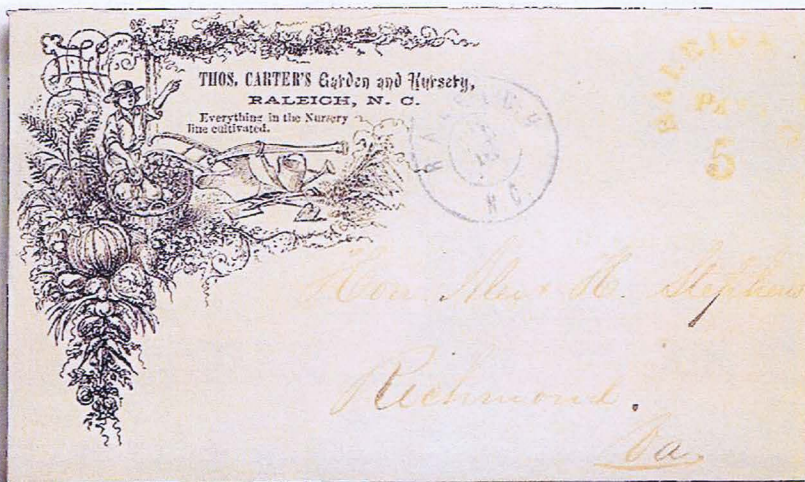 THOS. CARTER'S Garden and Nursery,
RALEIGH, N. C.
Everything in the Nursery
line cultivated.
RALEIGH
N. C.
RALEIGH
PAID
5
Hon Alex H. Stephens
Richmond.
Va.